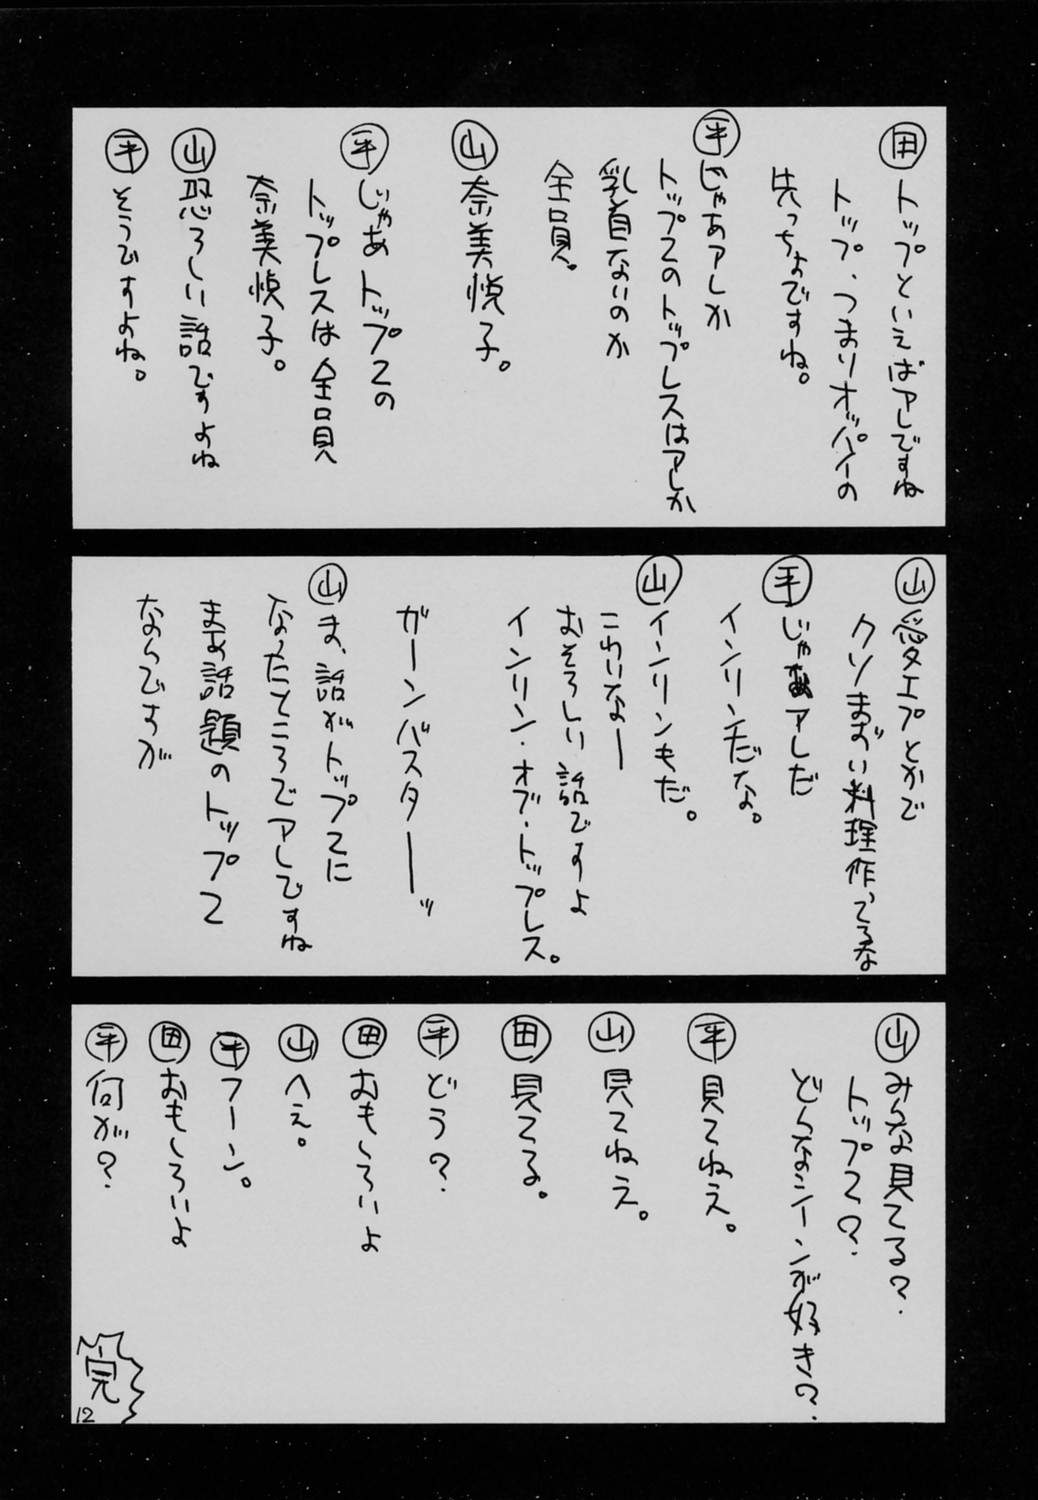 田 トップといえばアレですね
トップ、つまりオッパイの
先っちょですね。
平 じゃあアレか
トップ2のトップレスはアレか
乳首ないのか
全員。
山 奈美悦子。
平 じゃあトップ2の
トップレスは全員
奈美悦子。
山 恐ろしい話ですよね
平 そうですよね。
山 愛エプとかで
クソまずい料理作ってるな
平 じゃあアレだ
インリンだな。
山 インリンもだ。
こわいなー
おそろしい話ですよ
インリン・オブ・トップレス。
ガーンバスターーッ
山 ま、話がトップ2に
なったところでアレですね
まあ話題のトップ2
ならですが
山 みんな見てる?
トップ2?
どんなシーンが好き?
平 見てねえ。
山 見てねえ。
田 見てる。
平 どう?
田 おもしろいよ
山 へえ。
平 フーン。
田 おもしろいよ
平 何が?
完
12